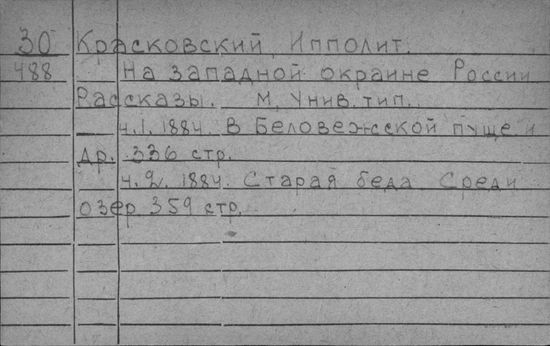 30 Красковский, Ипполит.
488 На западной окраине России
Рассказы. М. Унив. тип.
ч.1. 1884. В Беловежской пуще и
др. 336 стр.
ч.2. 1884. Старая беда. Среди
озер 359 стр.